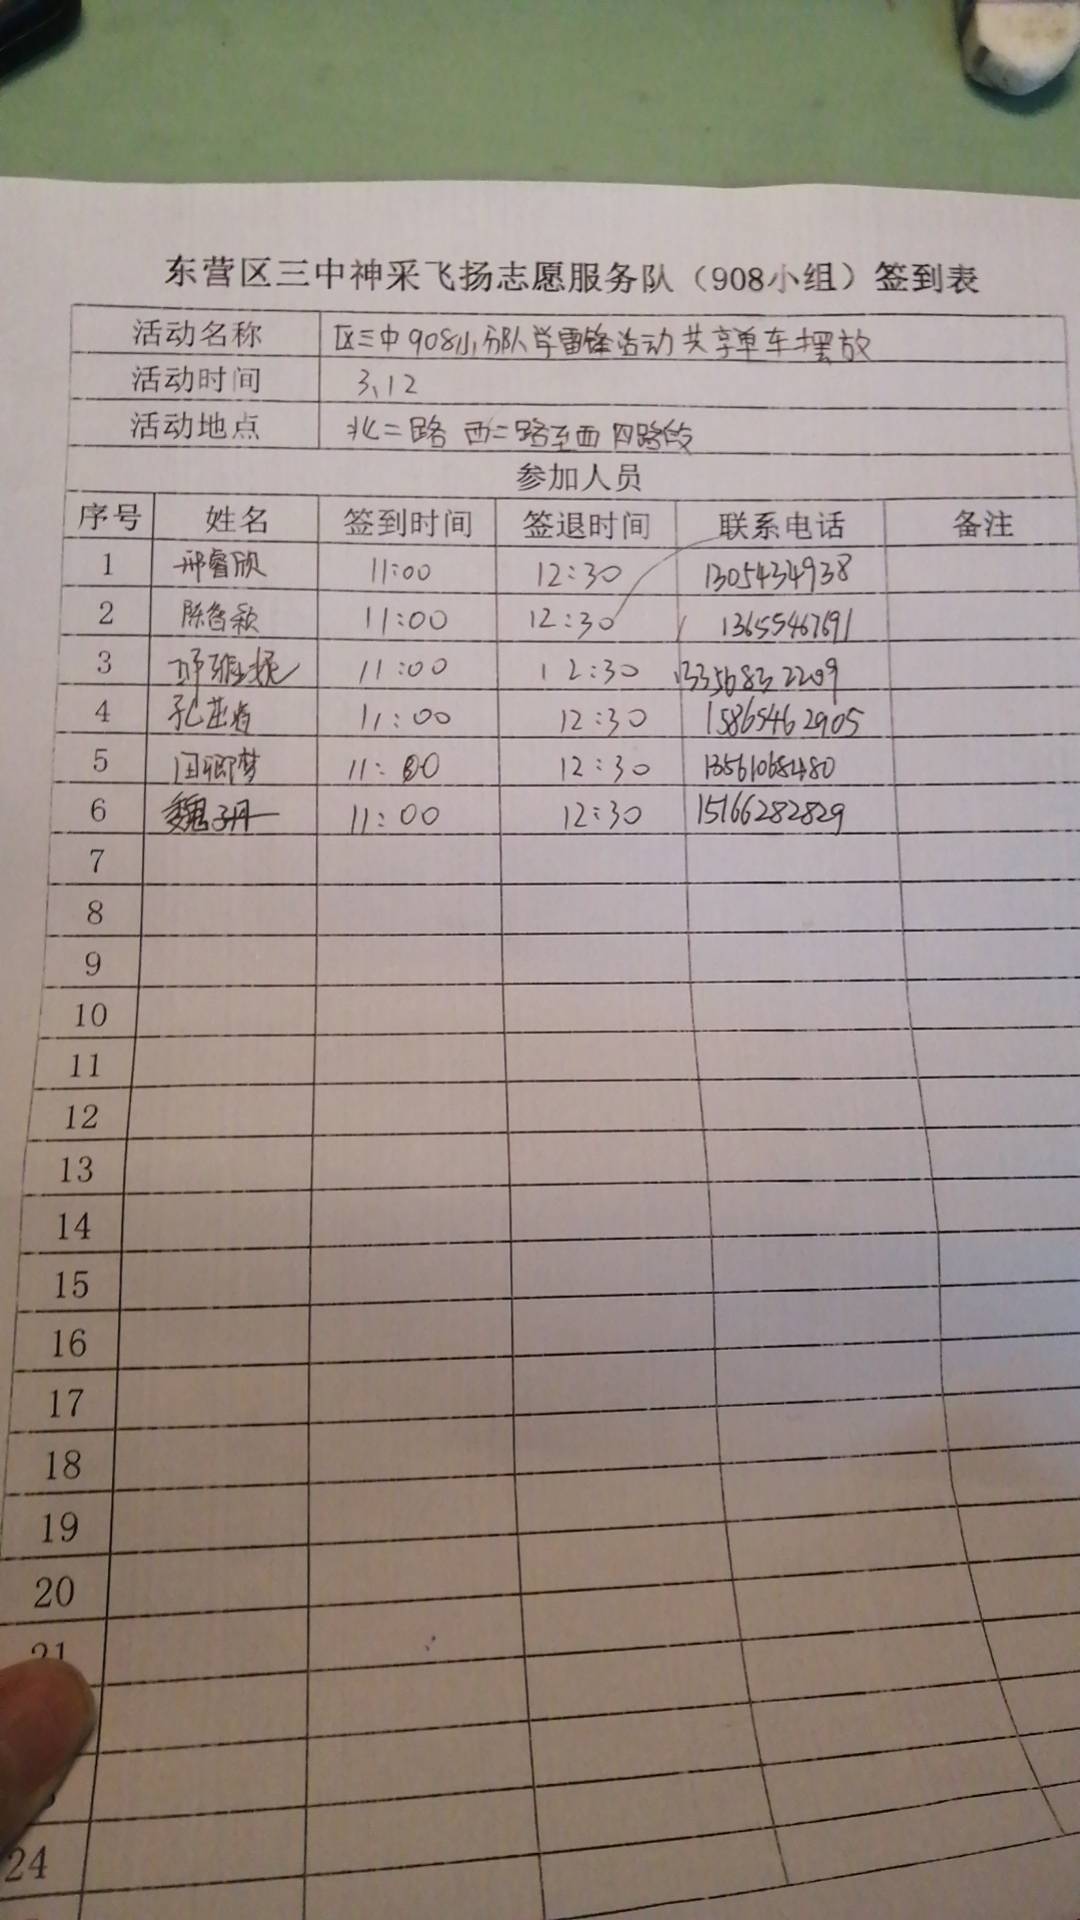 东营区三中神采飞扬志愿服务队（908小组）签到表
活动名称 区三中908小分队学雷锋活动共享单车摆放
活动时间 3.12
活动地点 北二路 西二路至西四路段
参加人员
序号 姓名 签到时间 签退时间 联系电话 备注
1 邢睿欣 11:00 12:30 1305434938
2 陈睿秋 11:00 12:30 13655467691
3 11:00 12:30 13356832209
4 11:00 12:30 15865462905
5 11:00 12:30 13561068480
6 魏子丹 11:00 12:30 15166282829
7
8
9
10
11
12
13
14
15
16
17
18
19
20
21
24